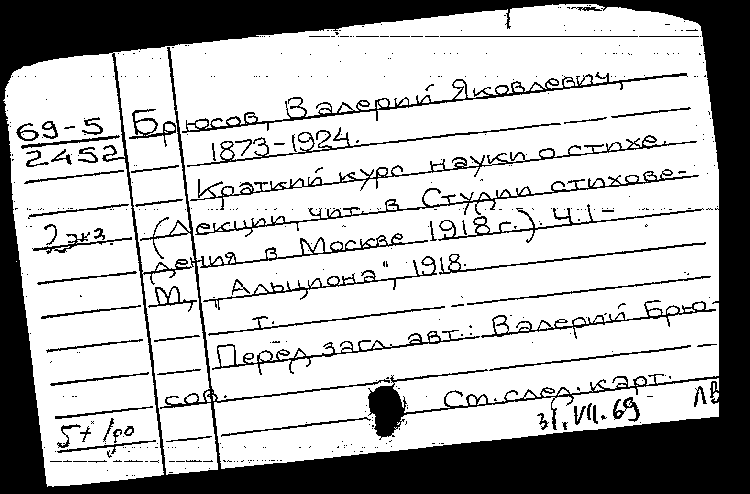 69-5
2452
Брюсов, Валерий Яковлевич,
1873-1924.
Краткий курс науки о стихе.
2 экз.
(Лекции, чит. в Студии стихове-
дения в Москве 1918 г.) Ч.1-
М., „Альциона", 1918.
т.
Перед загл. авт.: Валерий Брю-
сов.
См. след. карт.
31.VII.69
ЛВ